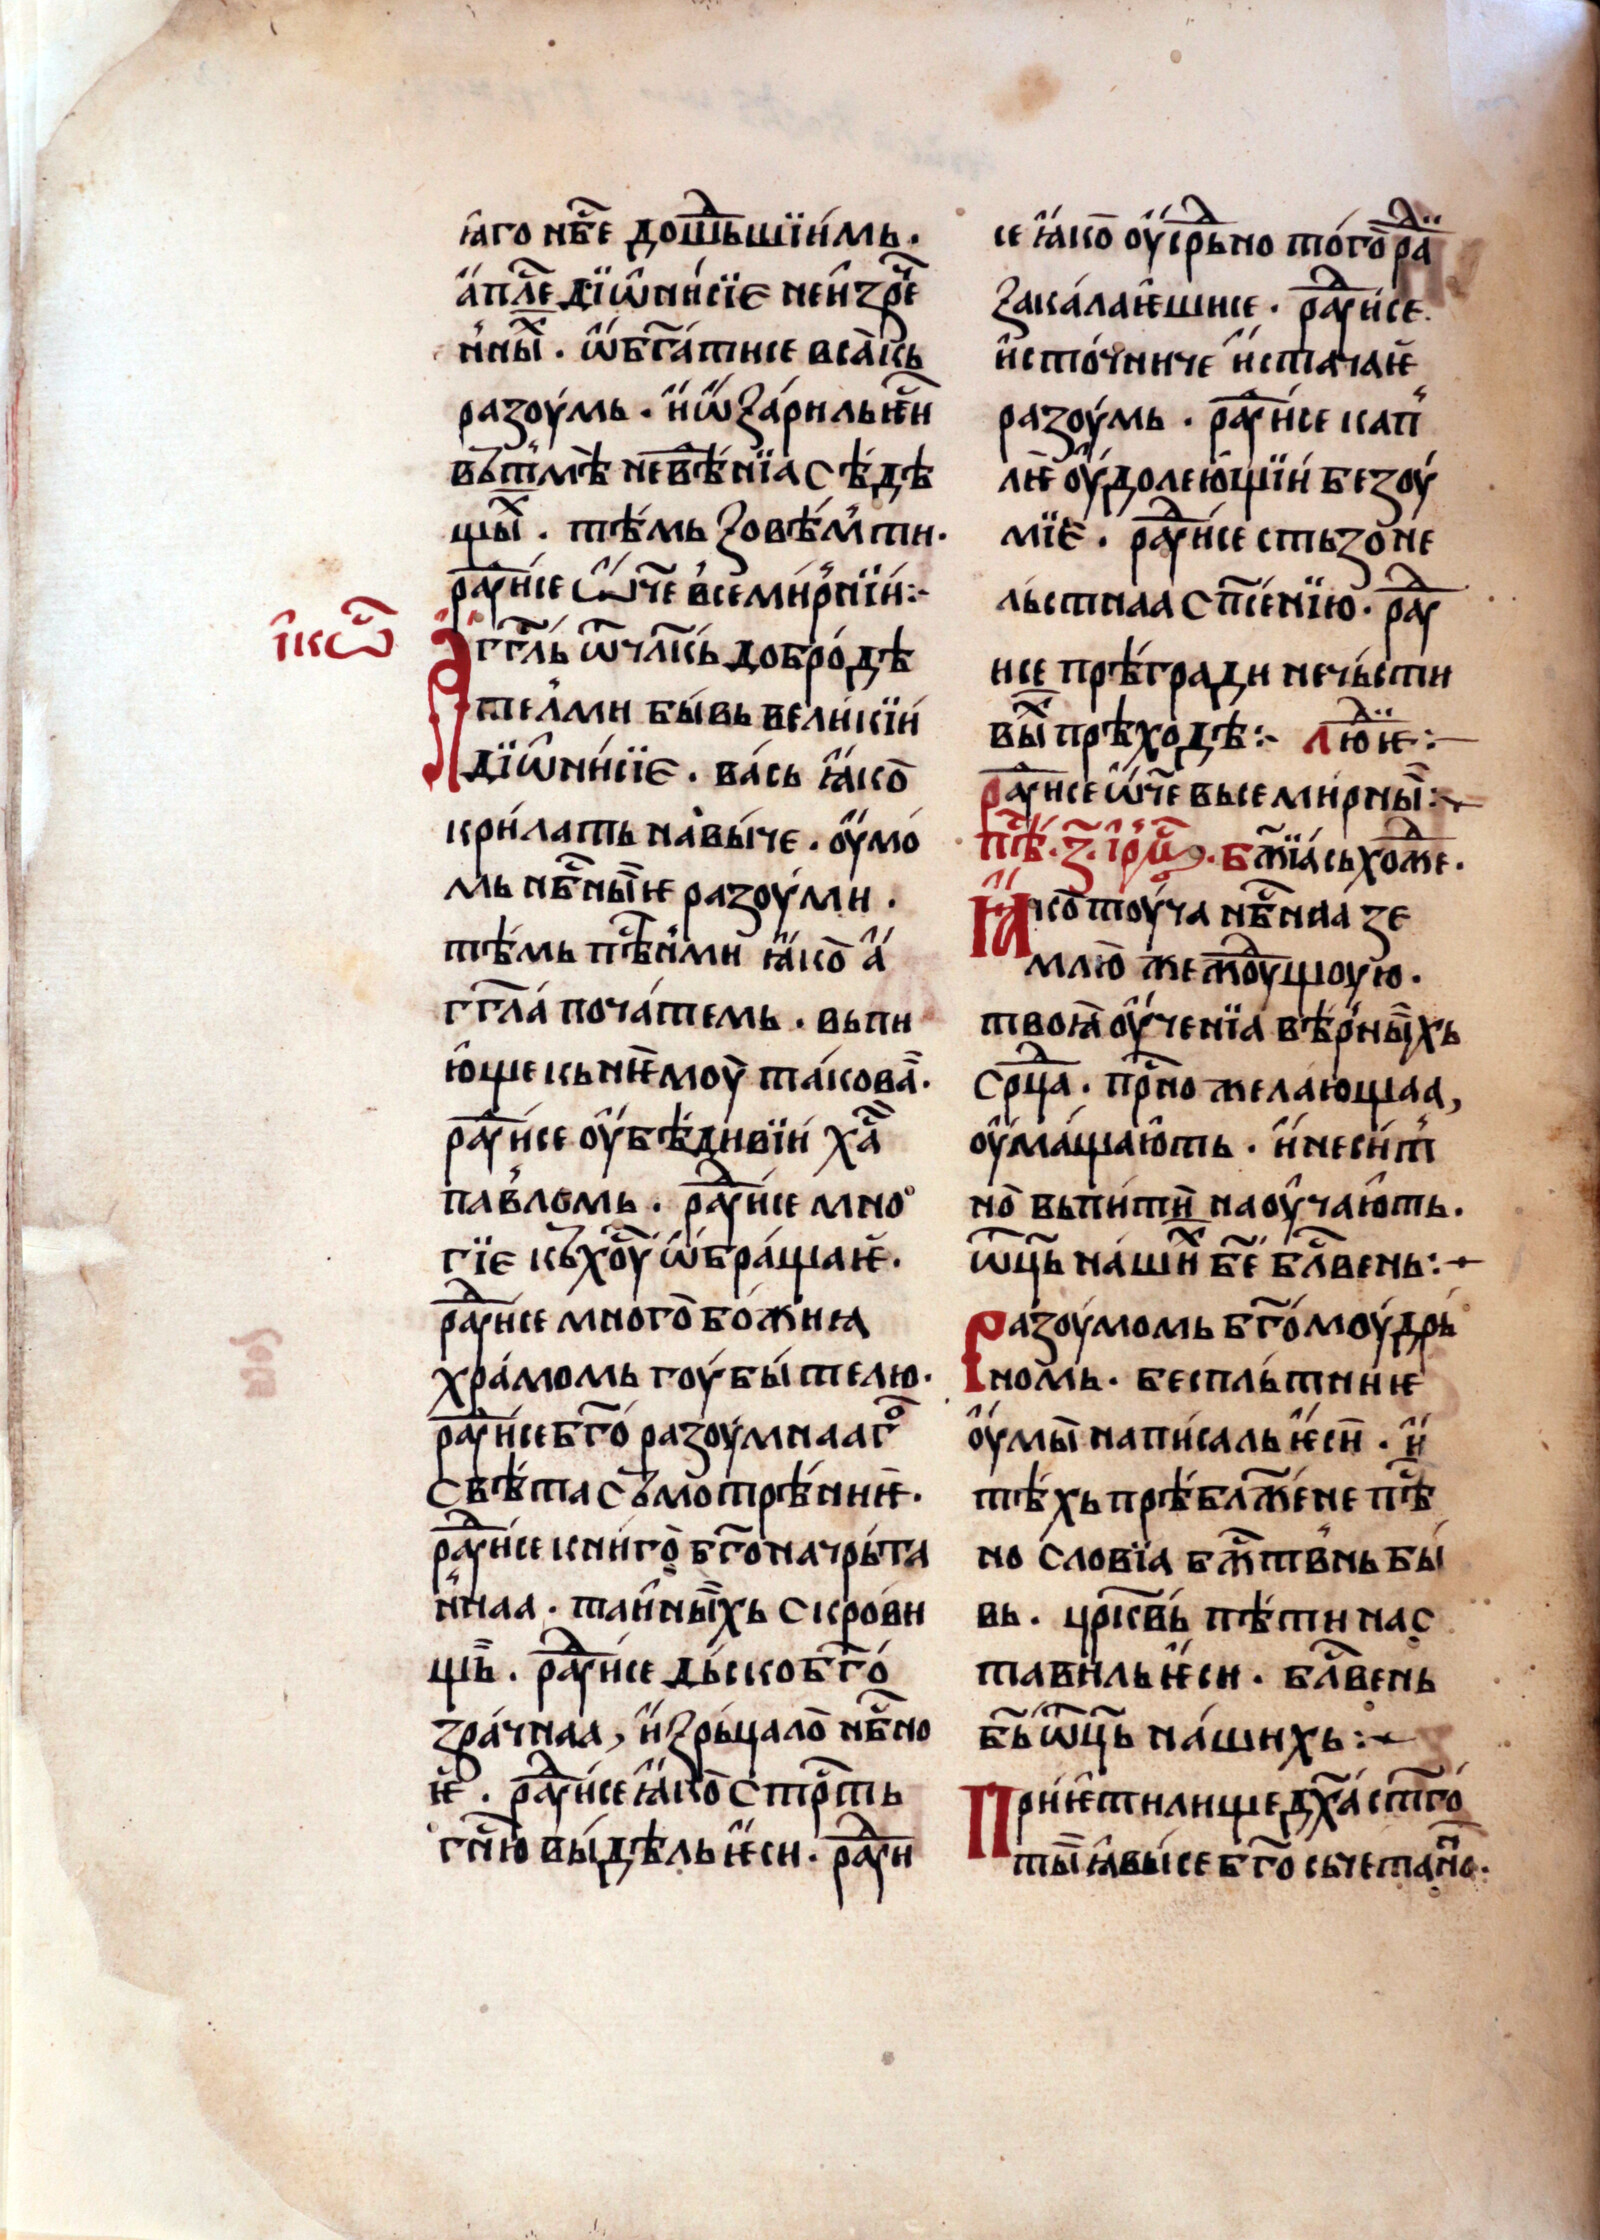 ꙗ҆го нбⷭ҇е дошⷣьшїи́мь·
а҆́плⷭ҇е дїѡ҆ни́сїе неи҆зрⷱ҇е
н꙽ны́хⷯ· ѡ҆бг҃ати́се вса́кь
разоу́мь· и҆ѡ҆зари́ль ѥ҆сⷭ҇и
въть́мѣ невⷣѣнїа сѣ́дѣ
щыⷯ· тѣ́мь зовѣ́м꙽ти·
раⷣꙋи́се ѿ҆ч҃е в꙽семи́р꙽нїи:·
і҆коⷭ҇
А҆гг҃ль ѿ҆члⷭ҇кь добро́дѣ
тел꙽ми бы́вь вели́кїи
дїѡ҆ни́сїе· ва́сь ꙗ҆́ко
кри́лать навы́че· оу҆мо́
мь нбⷭ҇ныѥ разоу́ми·
тѣ́мь пⷭ҇ѣньми ꙗ҆́ко а҆́
гг҃ла́ почьте́мь· вьпи
ю҆ще кьнѥмоу̀ такова̀·
раⷣꙋи́се оу҆бѣди́вїи хⷭ҇а
па́в꙽ломь· раⷣꙋи́се мно
гїе къхⷭ҇оу ѡ҆браща́ѥ·
раⷣꙋи́се много бо́жниꙗ
хра́момь гоубы́телю·
раⷣꙋи́се бг҃о́ разоумнааго
свѣ́та съмотрѣ́ниѥ·
раⷣꙋи́се кни́го бг҃оначрь́та
н꙽наа· таи҆ныⷯхь скро́ви
щь· раⷣꙋи́се дь́ско бг҃о́
зра́чнаа, и҆ зрь́цало нбⷭ҇но
ѥ· раⷣꙋи́се ꙗ҆́ко стрⷭ҇ть
гнⷭ҇ю вы́дѣль ѥ҆си· раⷣꙋи
се ꙗ҆́ко оу҆срⷣьно того̀ раⷣї
закала́ѥшисе· раⷣꙋи́се
и҆сто́чниче и҆стача́ѥ
разоу́мь· раⷣꙋи́се кап
лѥ оу҆долею́щїи безоу́
мїе́· раⷣꙋи́се стьзо не
ль́стнаа сп҃се́нїю· раⷣꙋ
исе прѣ́гради нечь́сти
выⷯ прѣходѣ:· лю́ⷣїѥ:·
раⷣꙋи́се ѿ҆ч҃е вьсеми́рныи:·
пⷭ҇ѣ· з҃· і҆рⷨѡ· бж҃їа сьхоⷤде·
Ꙗ҆́ко тоу́ча нбⷭ҇наа зе
млю̀ жежⷣоущоую·
твоꙗ̀ оу҆че́нїа вѣ́рныихь
срⷣца· прⷭ҇но желающаа,
оу҆ма́щаю҆ть· и҆ неси́т
но вьпи́ти наоу҆чаю҆ть·
ѿ҆ц҃ь на́шиⷯ бе҃ блⷭ҇вень:·
Разоу́момь бг҃омоу́дрь
номь· беспль́тниѥ
оу҆мы̀ написаль ѥ҆си· и҆
тѣ́хь прѣбл҃же́не пⷭ҇ѣ
но сло́вїа бжⷭ҇твнь бы́
вь· цр҃ковь пѣ́ти нас
тави́ль ѥ҆си· блⷭ҇вень
бь҃ ѿ҆ц҃ь на́шихь:·
Приѥ҆тилище дх҃а ст҃го́
ты̀ ꙗ҆вы́се бг҃о сьчета́н꙽но·